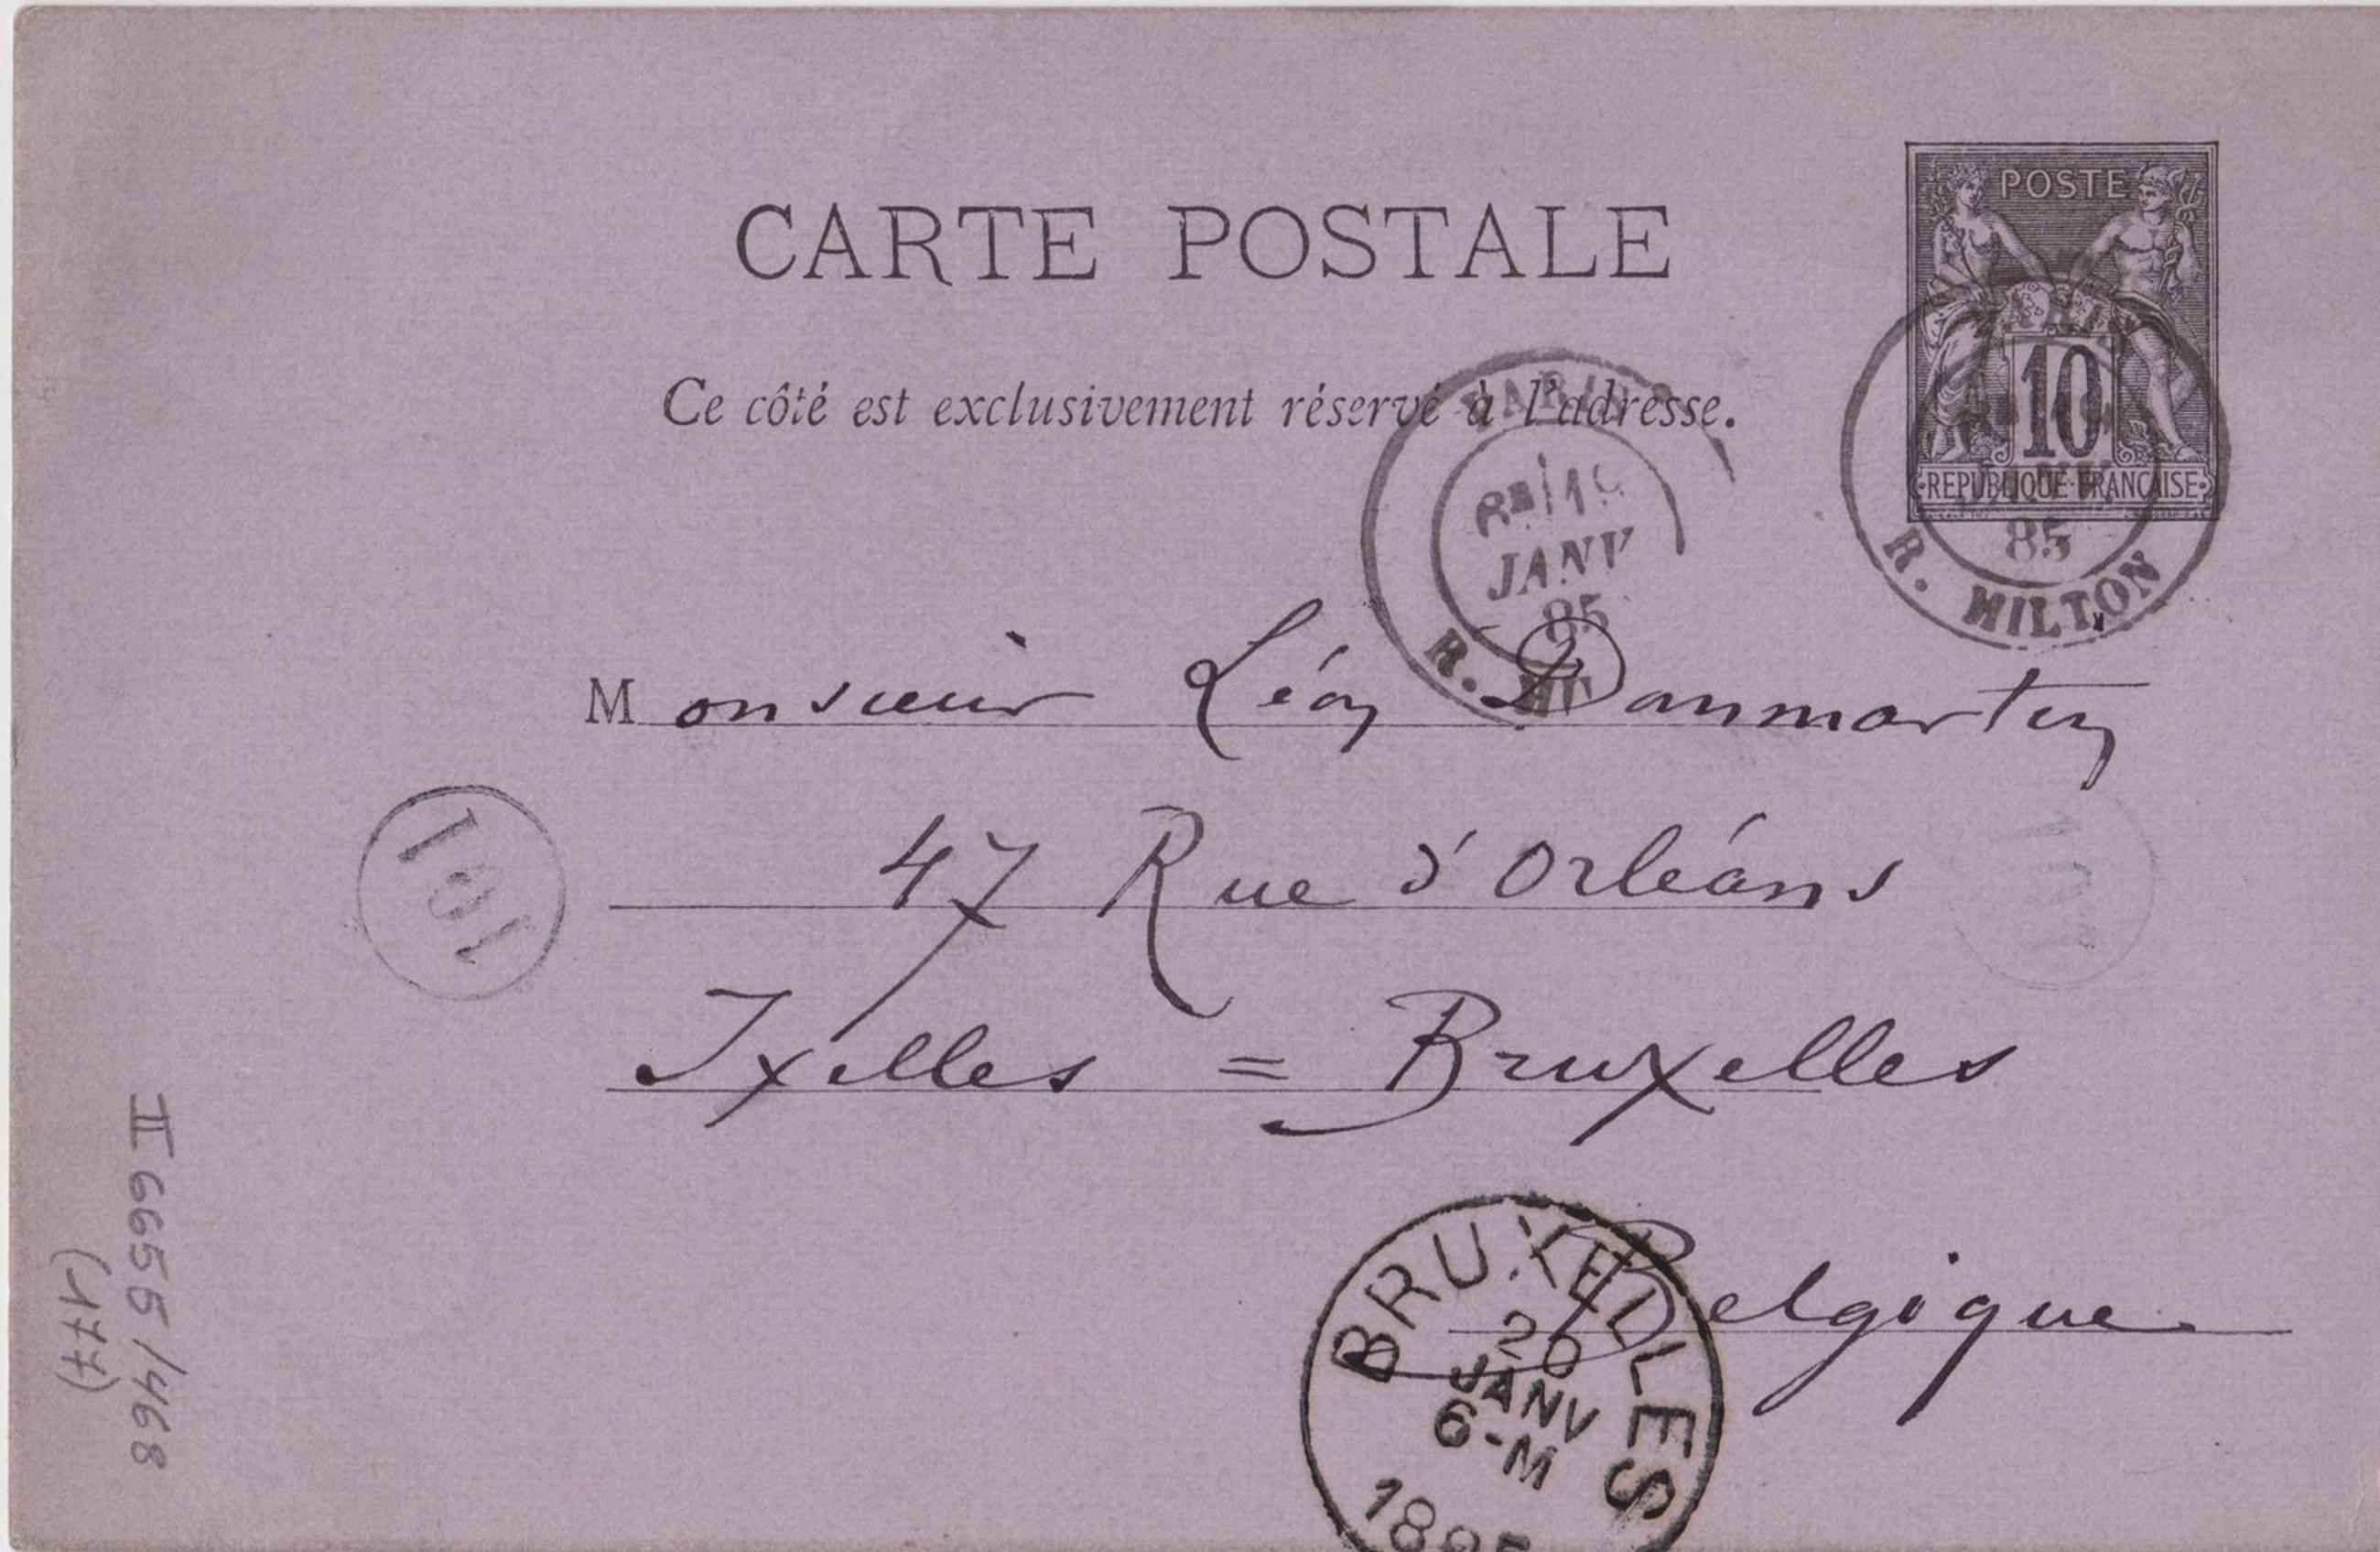 POSTE
CARTE POSTALE
10
REPUBLIQUE FRANCAISE
Ce côté est exclusivement réservé à l'adresse.
PARIS
JANV
85
R.
85
R. MILTON
Monsieur Léon Danmartin
47 Rue d'Orléans
Ixelles = Bruxelles
Belgique
101
101
BRUXELLES
20
JANV
6-M
1885
II 6655/468
(177)